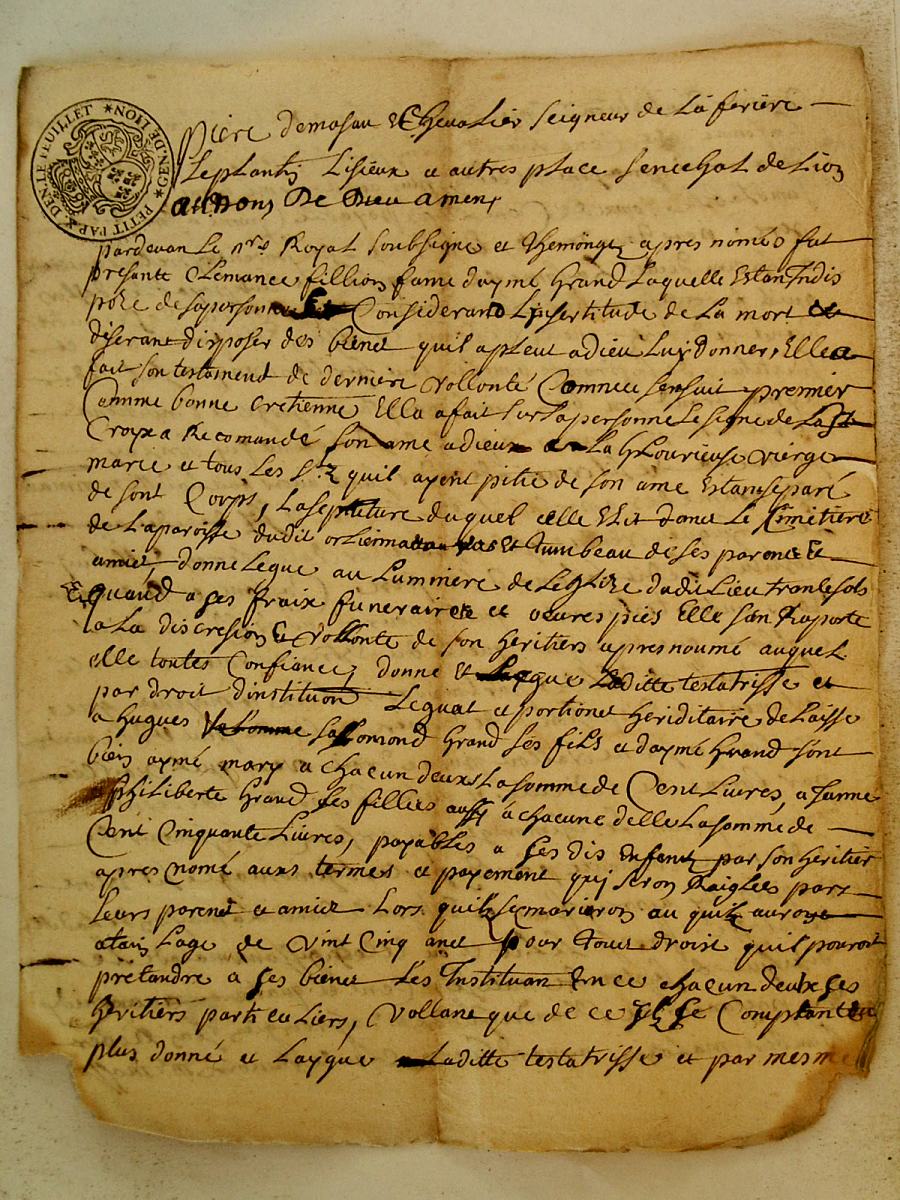 GEN.DE LION * PETIT PAP * DEN.LE FEUILLET *
Piere demasau Chevalier Seigneur de La feriere
Leplantin Lisieux a autres place Senechal de Lion
au Nom De Dieu amen
pardevan Le nre Royal Soubsigne et Thémoingz apres noméo fut
presante Clemance fillion fame daymé Grand Laquelle Estan Indis
pozé desapersonne Considerand Linsertitude de La mort
diserant disposer des bienet quil apleut adieu Luy donner, Ellea
fait Son testamend de derniere vollonté Comnee Sensuit premier
Comme bonne cretienne Ella afait Sur Sapersonne Lesigne de La St
Croix a Recomandé Son ame adieux La Glourieuse vierge
marie et tous Les Stz quil ayent pitie de Son ame Estanseparé
de sont Corps, La sepulture duquel elle Elit dans Le Simetiere
de Laparoisse dudit orlienna Et Tumbeau de ses parenet Et
amiet donne Legue au Luminere de Leglize dudi Lieu trantesols
Quand a ses fraix funeraires et oeuvres pies Elle San Raporte
a La discresion Et vollonte de son heritiers apresnoumé auquel
elle toutes Confiance, donne et Legue Laditte testatrisse et
par droit dinstitution Leguat et portionet heriditaire de Laisse
a hugues Sallomond Grand Ses fils a daymé Grand sont
bien aymé mary a chacun deuxs La somme de Cent Livres, a Janne
a philiberte Grand Ses fillies aussy a chacune delle La somme de
Cent Cinquante Livres, payables a ses dis enfant par son heritier
apres nomé auxs termes et payement quj seron Raiglées pars
Leurs parenet et amiet Lors quilz semarieron au quilz auront
atain Lage de vint Cinq anet pour tout droist quil pouroit
prétandre a ses bienet Les Instituan En ce chacun deulx ses
heritiers particuliers, vollane que de ce Il se Comptante
plus donné et Laygue Laditte testatrisse et par mesme